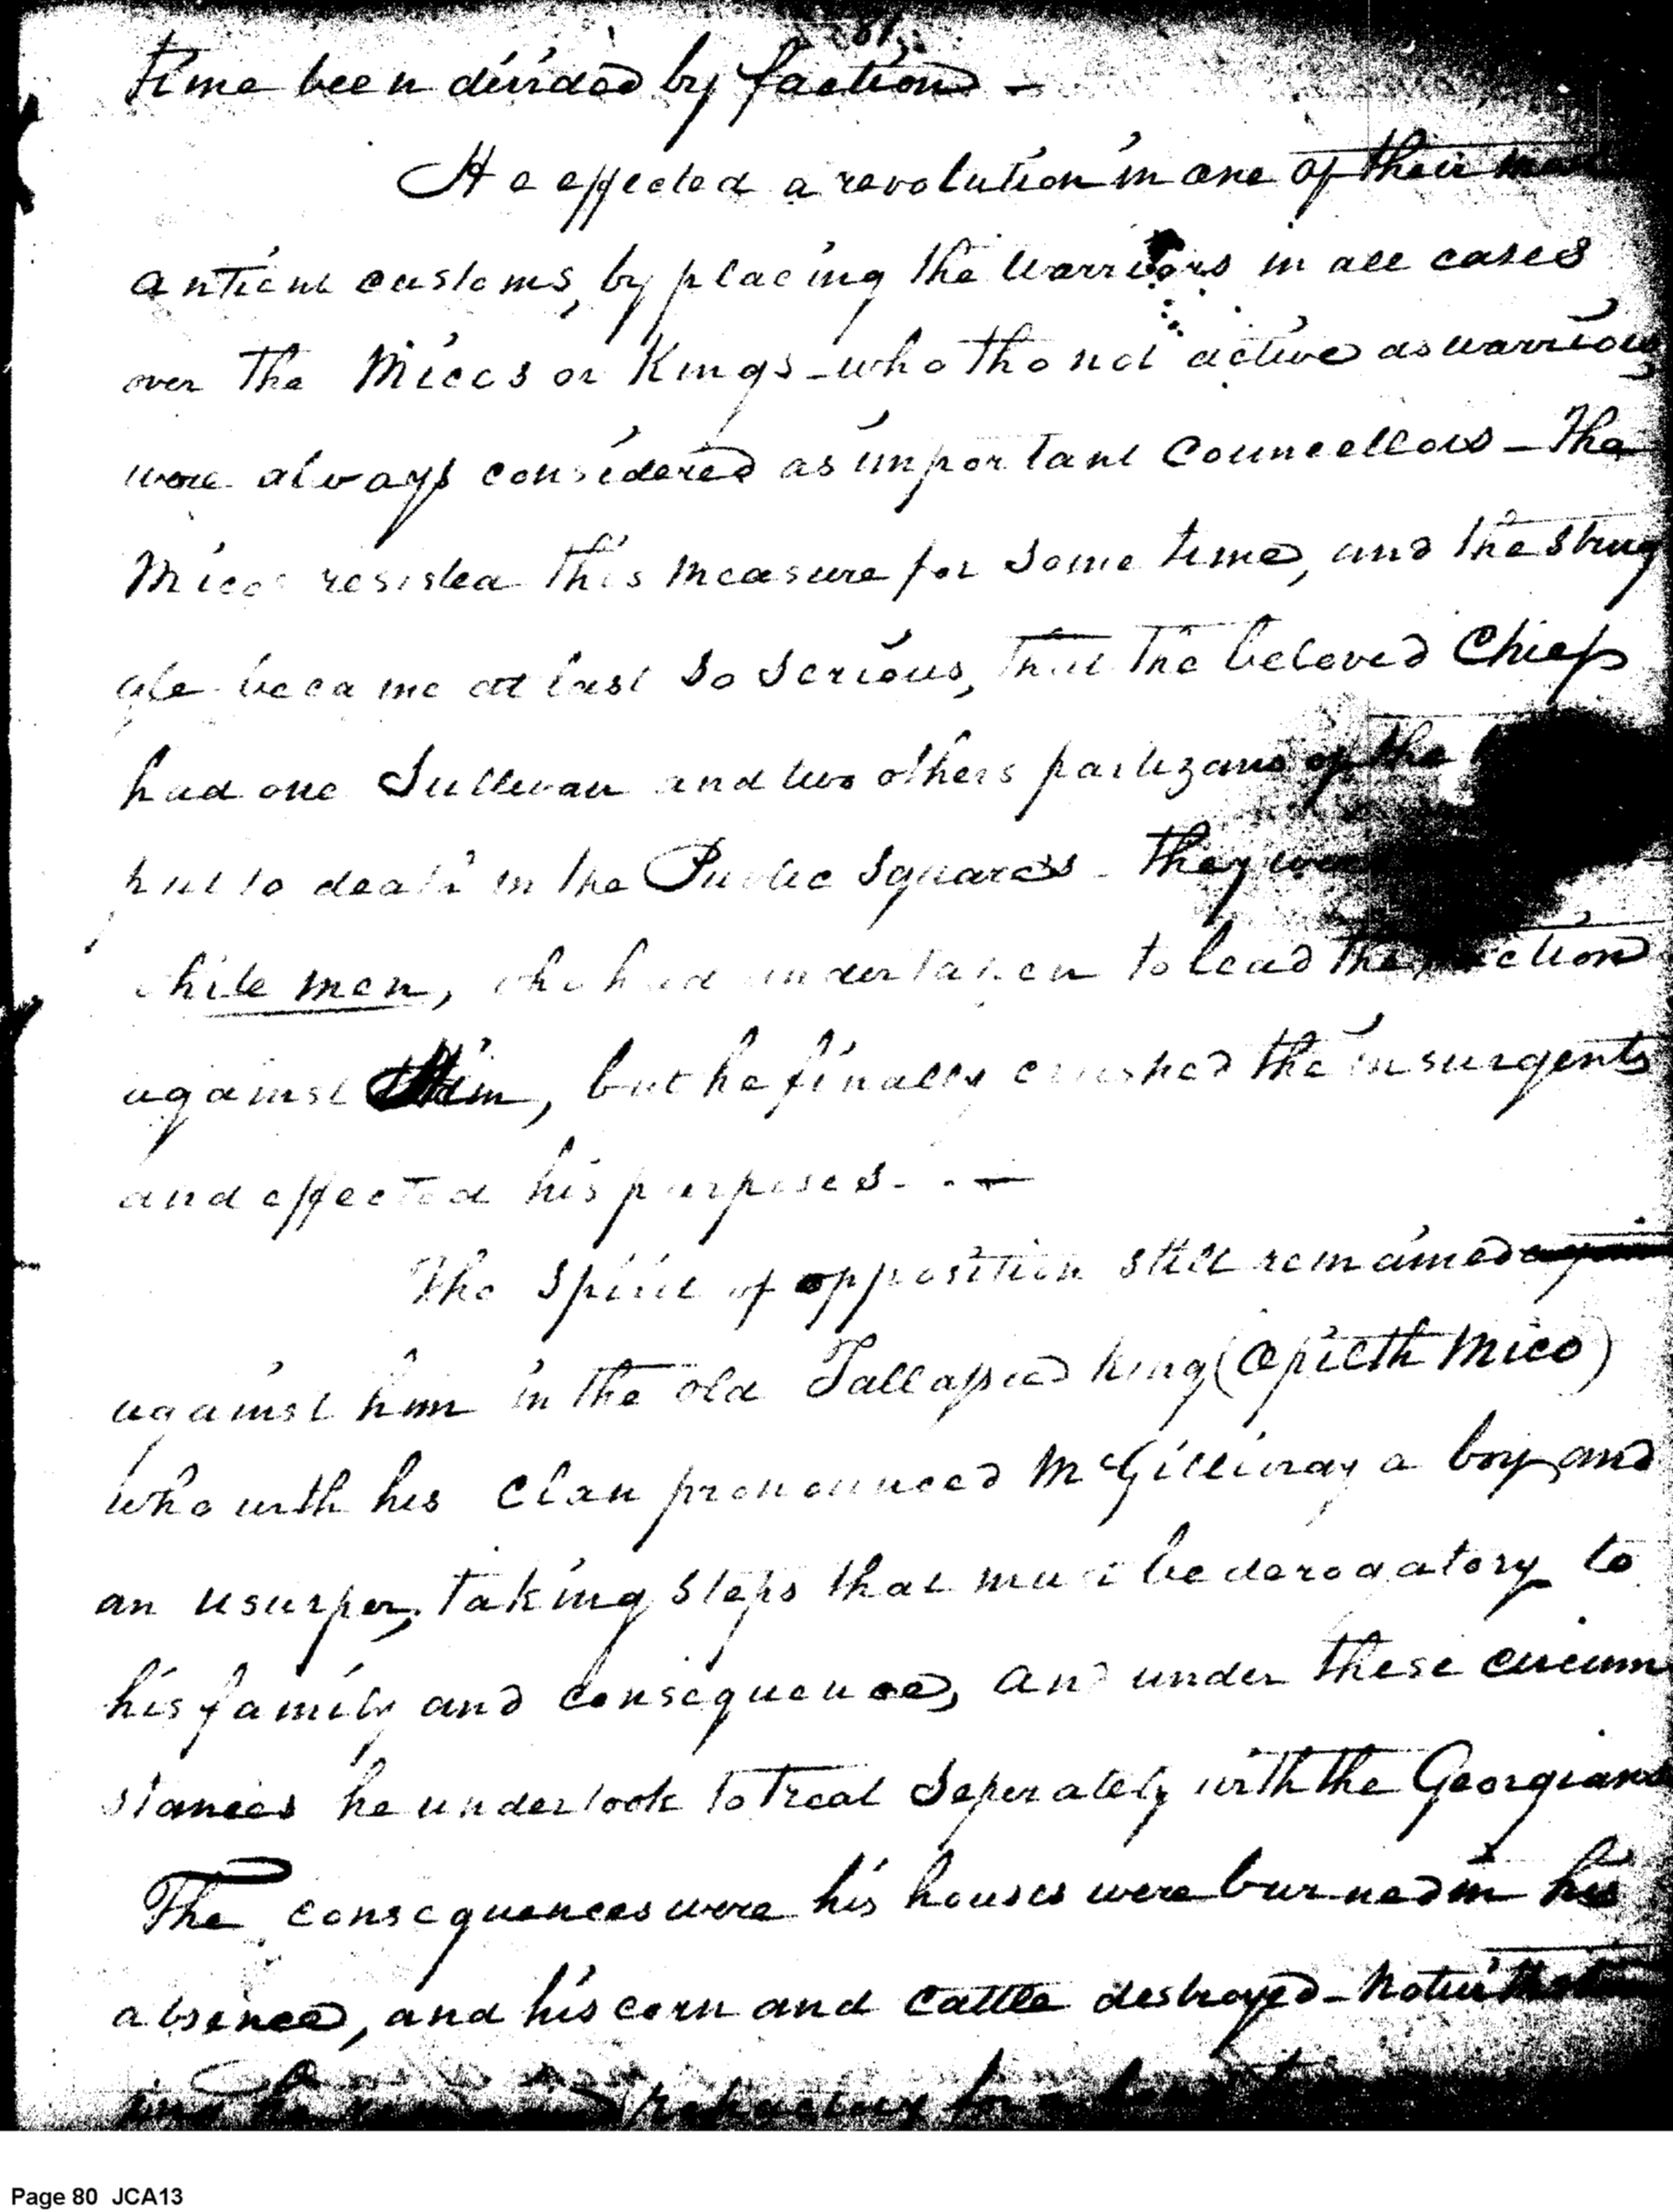 81.
time been divided by factions —
He effected a revolution in one of their most
antient customs, by placing the warriors in all cases
over the Micos or Kings - who tho not active as warriors,
were always considered as important Councellors — The
Micos resisted this measure for some time, and the strug
gle became at last so serious, that the beloved Chief
had one Sullivan and two others partizans of the
put to death in the Public Squares - They were
white men, who had undertaken to lead the faction
against him, but he finally crushed the insurgents
and effected his purposes. . —
The Spirit of opposition still remained
against him in the old Tallassee King (Opilth Mico)
who with his Clan pronounced McGillivray a boy, and
an usurper, taking steps that must be derogatory to
his family and consequence, and under these circum
stances he undertook to treat Seperately with the Georgians
The consequences were his houses were burned in his
absence, and his corn and Cattle destroyed - Notwithstand
ing he remained refractory for a
Page 80 JCA13